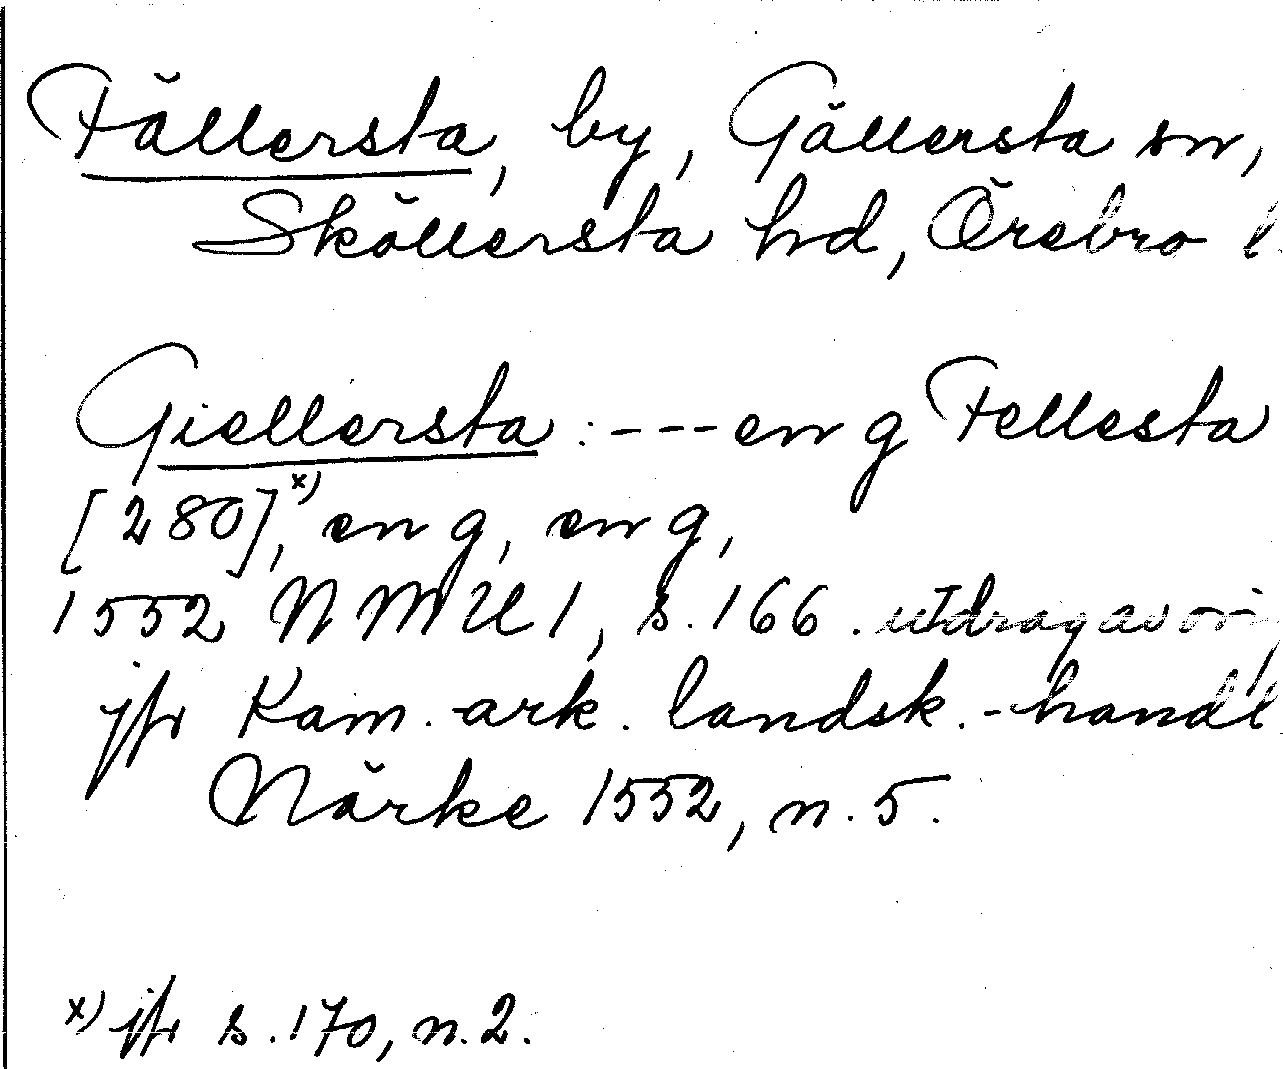 Fällersta, by, Gällersta sn,
Sköllersta hd, Örebro l.
Giellersta : --- en g Fellesta
[280],ˣ⁾ en g, en g,
1552 NMU 1, s. 166. utdrag av
jfr Kam.-ark. landsk.-handl
Närke 1552, n. 5.
x) jfr s. 170, n. 2.